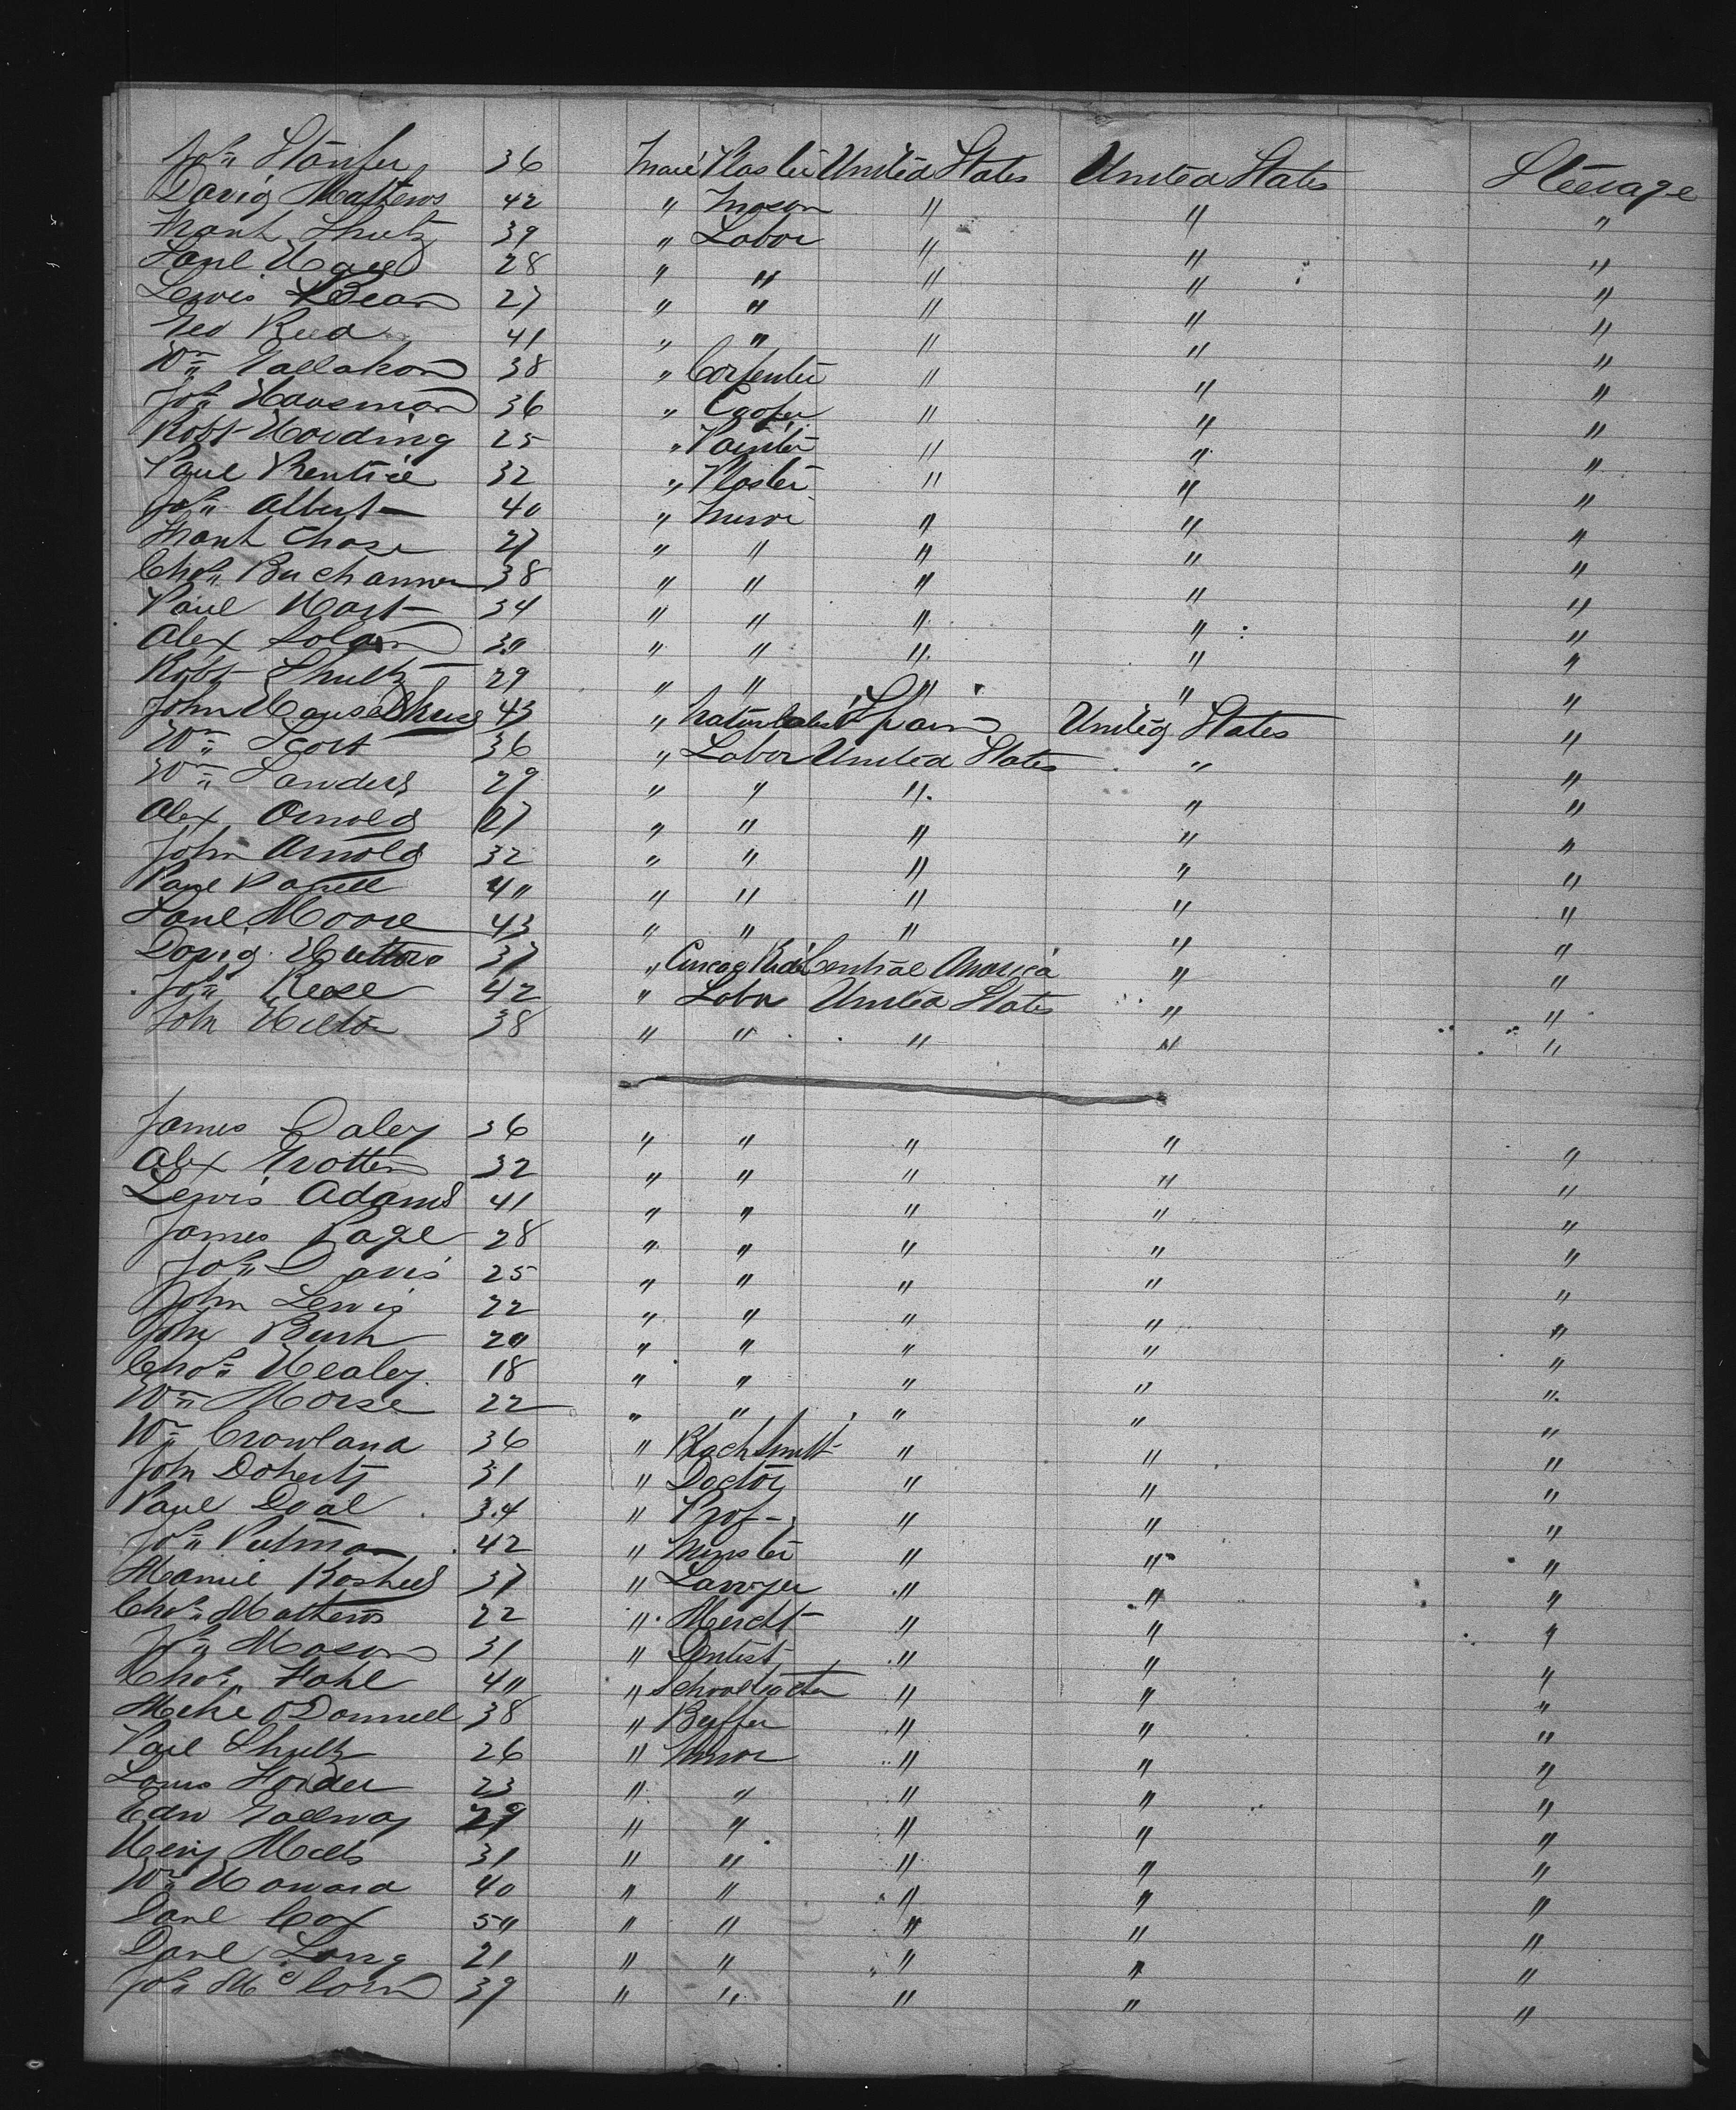 Jos Stanfer 36 Male Plaster United States United States Steerage
David Mathews 42 " Mason " " "
Frank Shultz 39 " Labor " " "
Saml 28 " " " " "
Lewis Bean 27 " " " " "
Geo Reed 41 " " " " "
Wm Gallahan 38 " Carpenter " " "
Jos Hausman 36 " Cooper " " "
Robt Harding 25 " Painter " " "
Paul Prentice 32 " Plaster " " "
Jos Albert 40 " Minor " " "
Frank Chase 27 " " " " "
Chas Buchanner 38 " " " " "
Paul Hart 34 " " " " "
Alex 30 " " " " "
Robt Shultz 29 " " " " "
John 43 " Naturalist Spain United States "
Wm Scott 36 " Labor United States " "
Wm Sanders 29 " " " " "
Alex Arnold 27 " " " " "
John Arnold 32 " " " " "
Paul 40 " " " " "
Saml Moore 43 " " " " "
David Hutton 37 " Central America " "
Jos Reese 42 " Labor United States " "
John Hilton 38 " " " " "
James Daley 36 " " " " "
Alex Trotter 32 " " " " "
Lewis Adams 41 " " " " "
James Page 28 " " " " "
Jos Davis 25 " " " " "
John Lewis 22 " " " " "
John Bush 20 " " " " "
Chas Healey 18 " " " " "
Wm Morse 22 " " " " "
Wm Crowland 36 " Blacksmith " " "
John Doherty 31 " Doctor " " "
Paul Deal 34 " Prof " " "
Jos Putman 42 " Minster " " "
Mamie 37 " Lawyer " " "
Chas Mathews 22 " Mercht " " "
Jos Mason 31 " Dentist " " "
Chas Hahl 40 " " " "
Mike O'Donnell 38 " " " "
Paul Shultz 26 " Minor " " "
Louis 23 " " " " "
Edw Gallway 29 " " " " "
Henry Mills 31 " " " " "
Wm Howard 40 " " " " "
Danl Cox 50 " " " " "
Danl Long 21 " " " " "
Jos 39 " " " " "